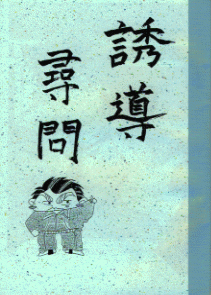 誘導
尋問